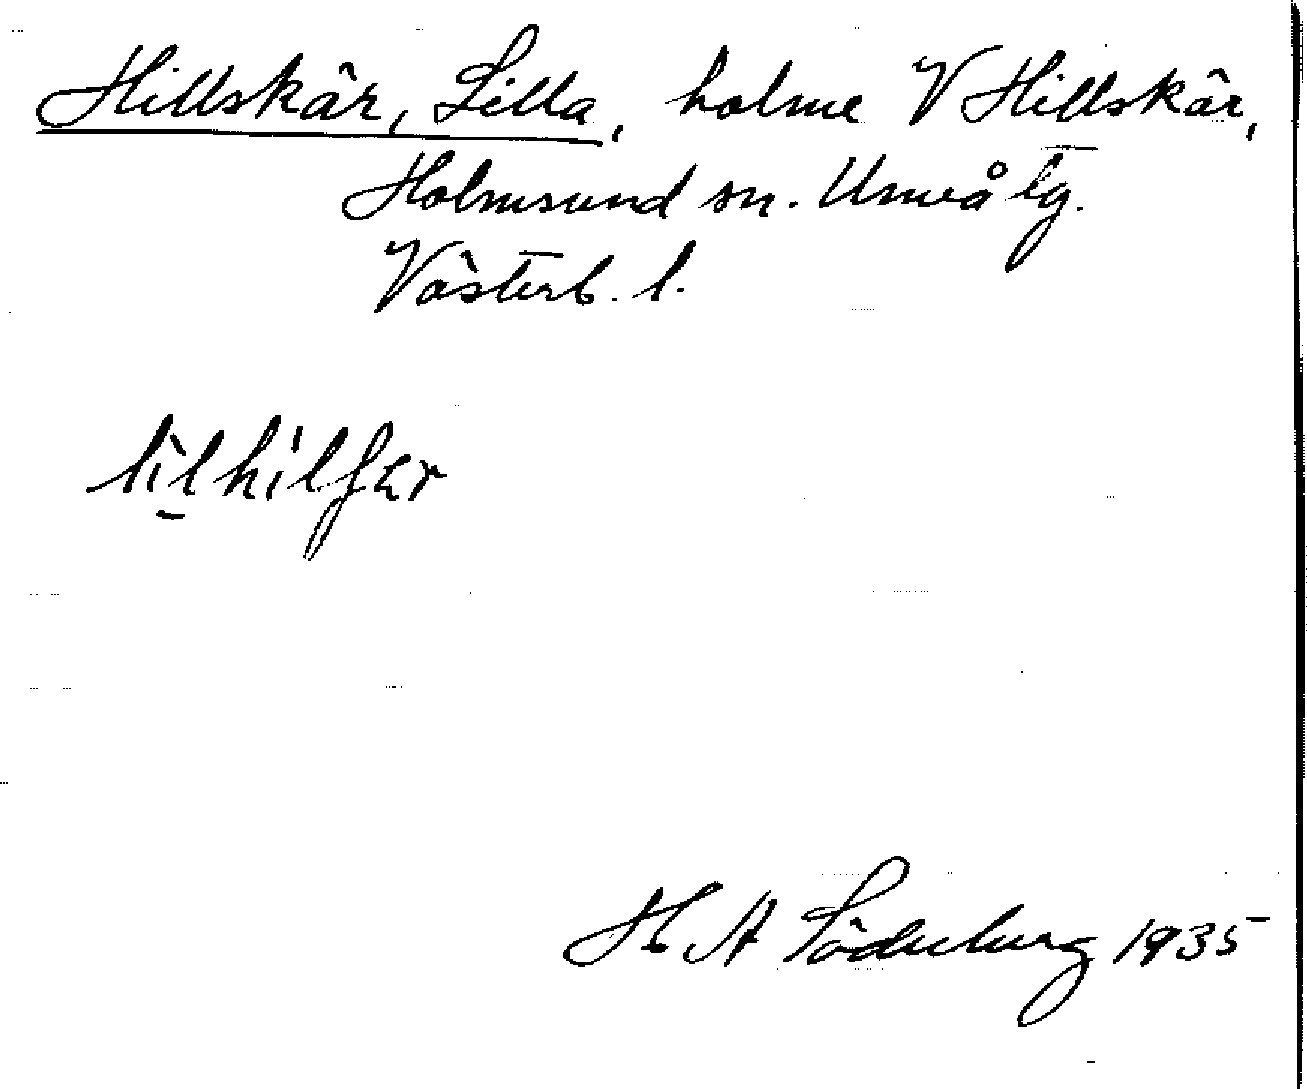 Hillskär, Lilla, holme V Hillskär,
Holmsund sn. Umeå tg.
Västerb. l.
lìl̠hìlʃɛr
H A Söderberg 1935